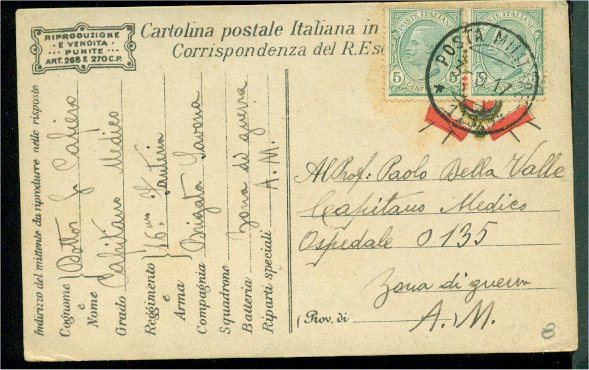 RIPRODUZIONE
E VENDITA
PUNITE
ART. 268 E 270 C.P.
Cartolina postale Italiana in
Corrispondenza del R. Ese
POSTE ITALIANE
POSTE ITALIANE
5 CENT
POSTA MILITAR
17
Indirizzo del mittente da riprodurre nelle risposte
Cognome Dottor
e
Nome
Grado Capitano Medico
Reggimento Fanteria
e
Arma
Compagnia Brigata Savona
Squadrone
Batteria Zona di guerra
Riparti speciali A. M.
Al Prof: Paolo Della Valle
Capitano Medico
Ospedale 0135
Zona di guerra
(Prov. di A. M.)
8